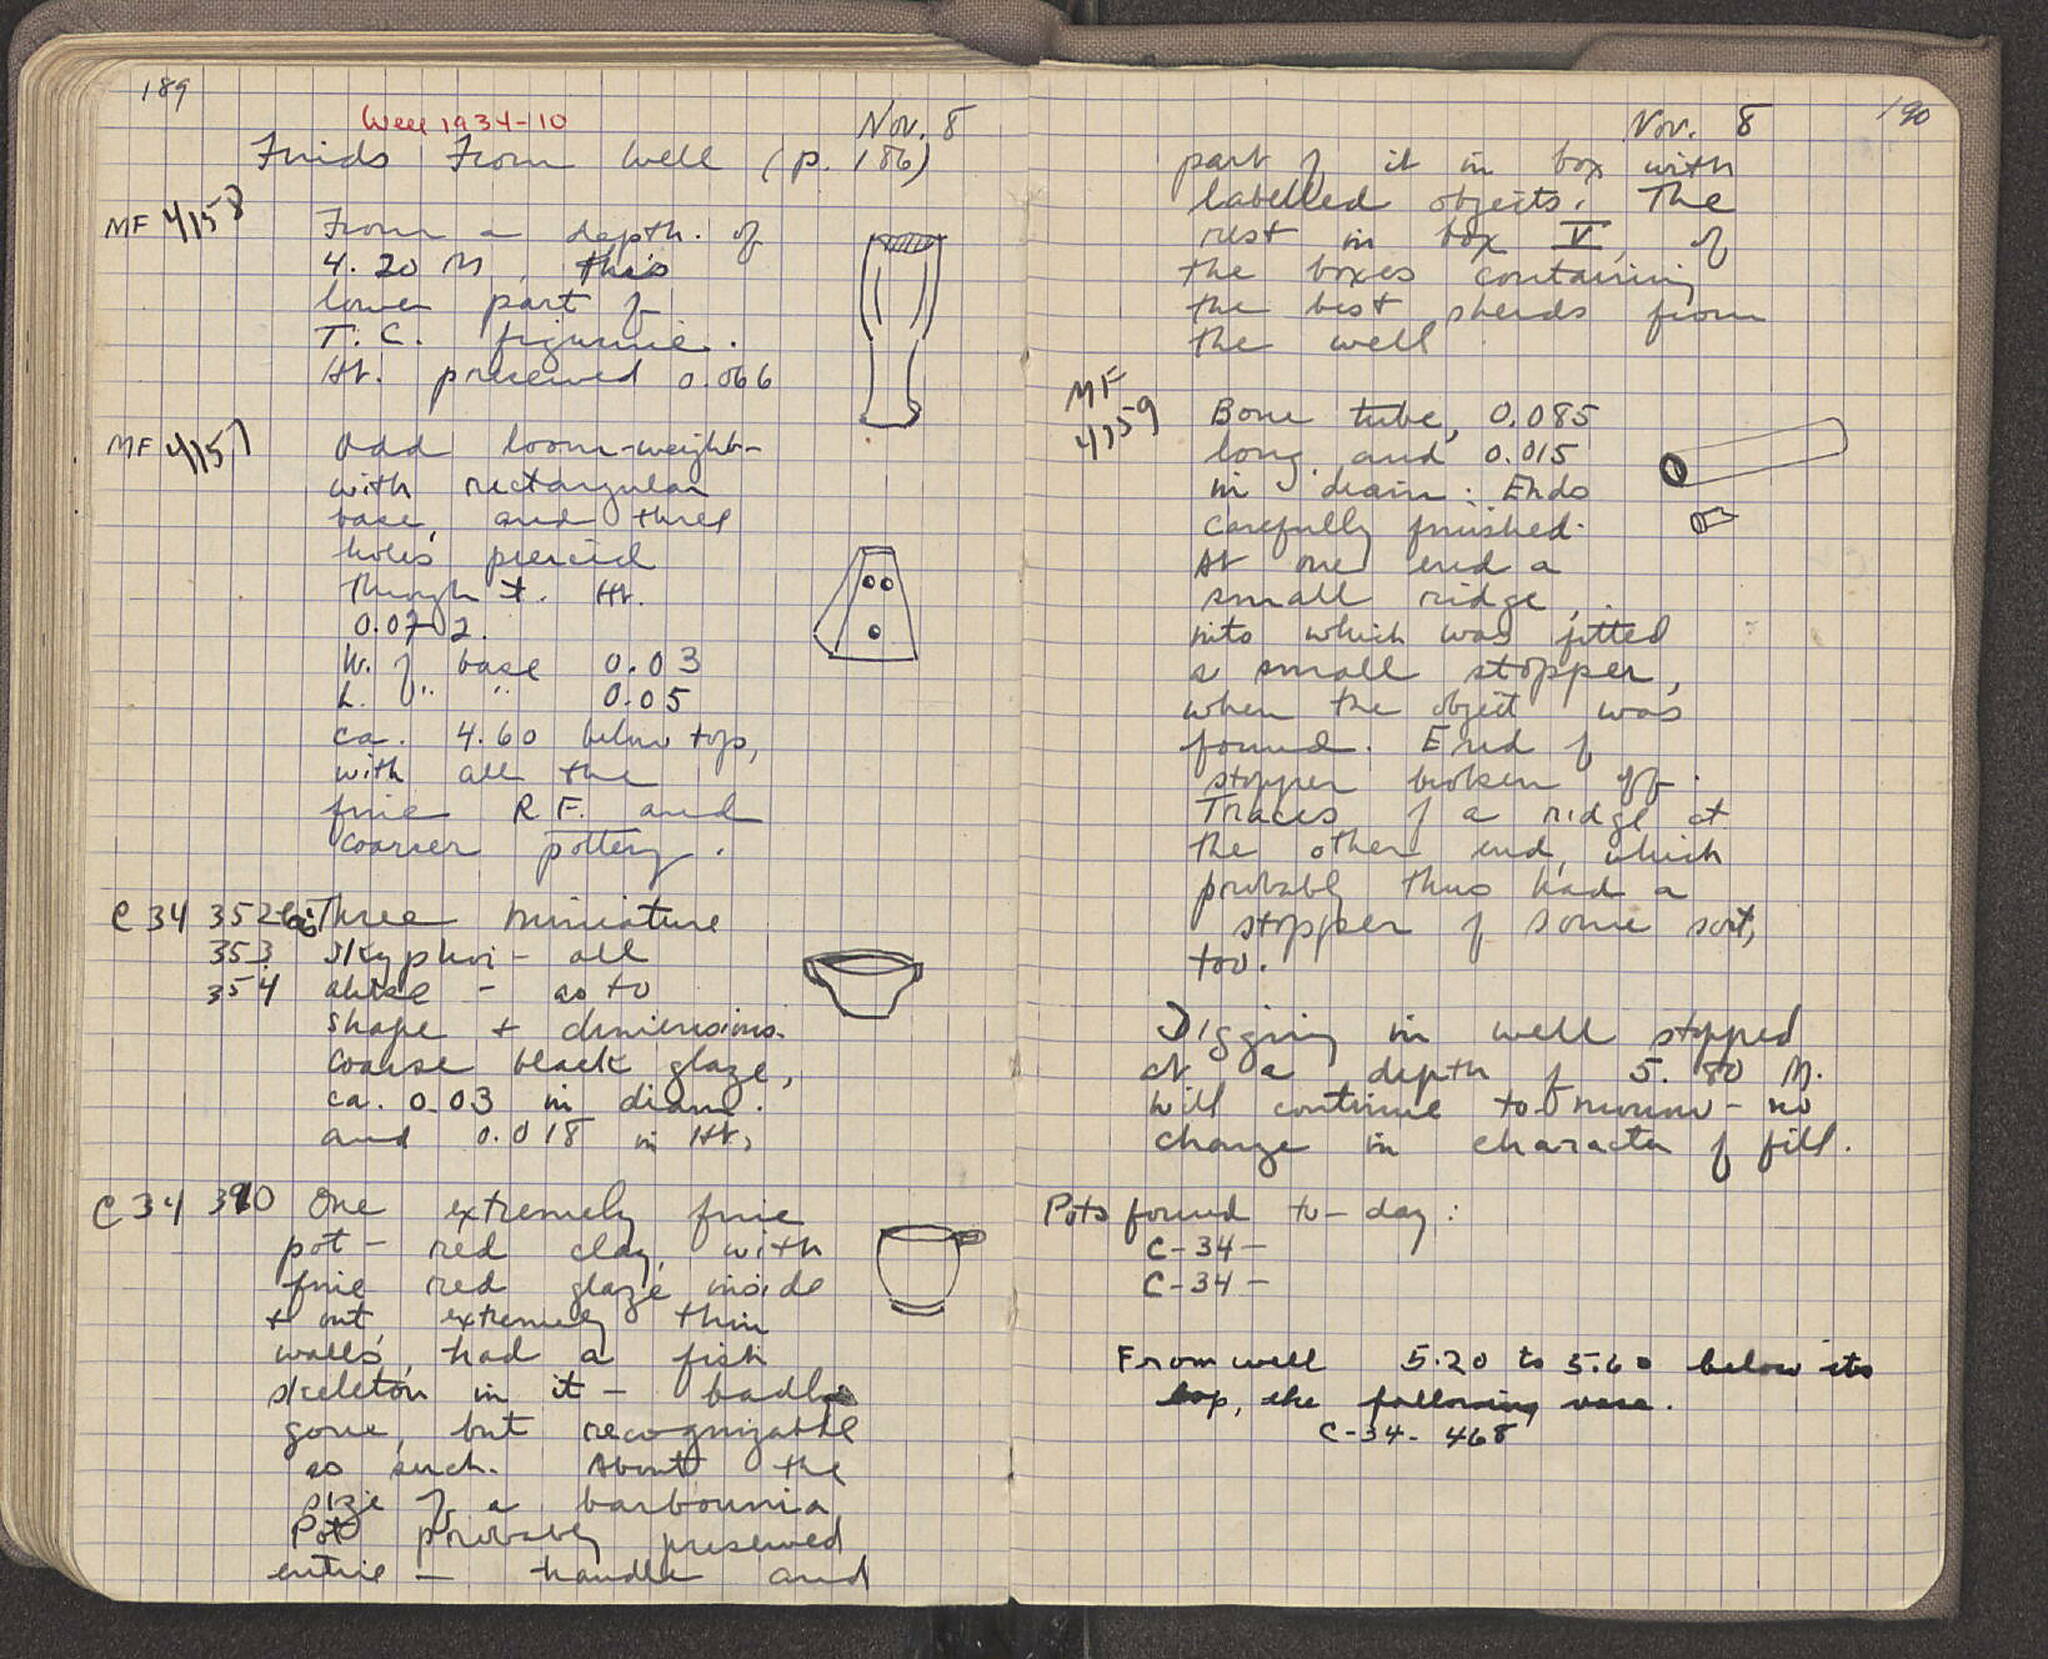 189
Well 1934-10
Nov. 8
Finds From Well (p. 186)
MF 4158 From a depth of
4.20 M, this
lower part of
T.C. figurine.
Ht. preserved 0.066
MF 4157 Odd loom-weight-
with rectangular
base, and three
holes pierced
through it. Ht.
0.072.
W. of base 0.03
L. " " 0.05
ca. 4.60 below top,
with all the
fine R.F. and
coarser pottery.
C 34 352bis Three miniature
353 skyphoi - all
354 alike - as to
shape + dimensions.
Coarse black glaze,
ca. 0.03 in diam.
and 0.018 in Ht.
C 34 390 One extremely fine
pot - red clay, with
fine red glaze inside
+ out, extremely thin
walls, had a fish
skeleton in it - badly
gone, but recognizable
as such. About the
size of a barbounia
Pot probably preserved
entire - handle and
190
Nov. 8
part of it in box with
labelled objects. The
rest in box V, of
the boxes containing
the best sherds from
the well
MF
4159 Bone tube, 0.085
long, and 0.015
in diam. Ends
carefully finished.
At one end a
small ridge,
into which was fitted
a small stopper,
when the object was
found. End of
stopper broken off.
Traces of a ridge at
the other end, which
probably thus had a
stopper of some sort,
too.
Digging in well stopped
at a depth of 5.80 M.
Will continue tomorrow - no
change in character of fill.
Pots found to-day:
C-34-
C-34-
From well 5.20 to 5.60 below its
top, the following vase.
C-34-468